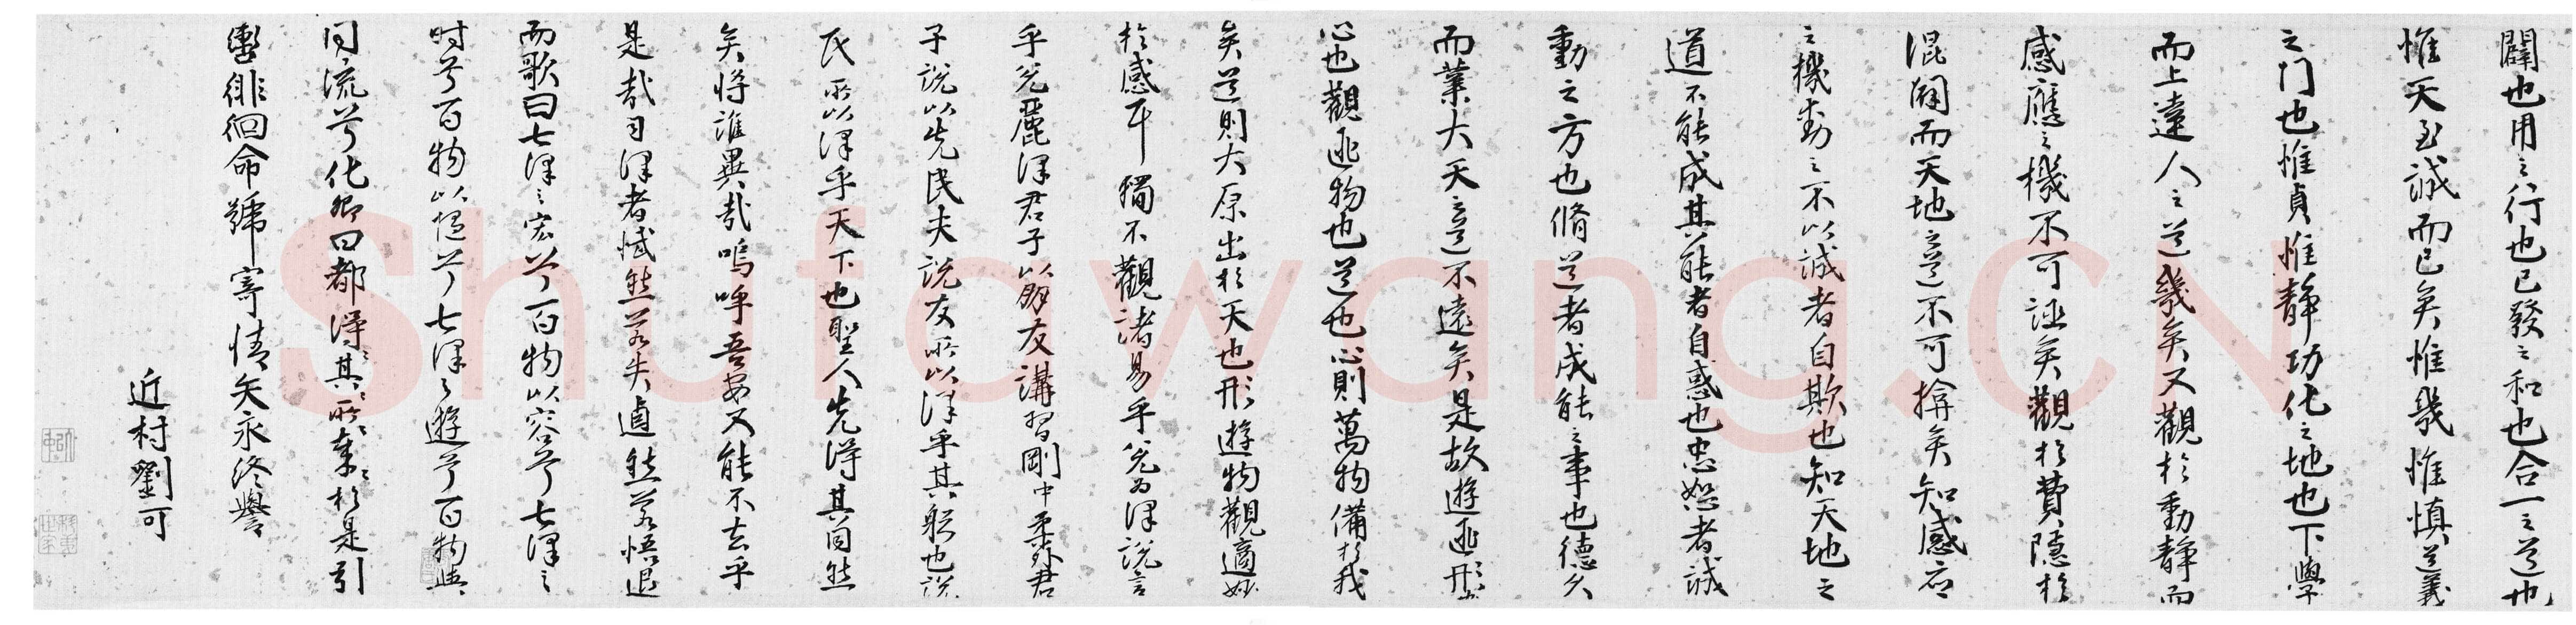 闢也用之行也已發之和也合一之道也
惟天至誠而已矣惟幾惟慎道義
之门也惟貞惟静功化之地也下學
而上達人之道幾矣又觀於動静而
感應之機不可誣矣觀於費隱於
混闢而天地之意不可揜矣知感應
之機動之不以诚者自欺也知天地之
道不能成其能者自惑也忠恕者誠
動之方也脩道者成能之事也德久
而業大天之意不遠矣是故遊玩形
心也觀玩物也道也心則萬物備於我
矣道則大原出於天也形遊物觀適妙
於感耳獨不觀諸易乎兌為澤説言
乎兌麗澤君子以朋友講習剛中柔外君
子説以先民夫説友所以澤乎其躬也説
民所以澤乎天下也聖人先得其同然
矣将誰異哉嗚呼吾安又能不去乎
是哉司澤者憾然若失逌然若悟退
而歌曰七澤之宏兮百物以容兮七澤之
时兮百物以熙兮七澤之遊兮百物與
同流兮化卿曰都得其所得其所哉於是引
轡徘徊命號寄情矢永終譽
近村劉可
Shufawang.CN